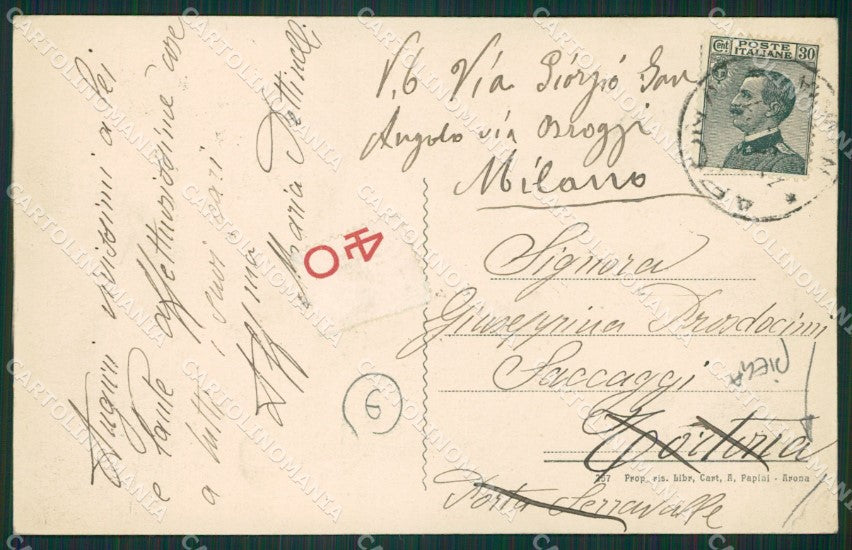 Auguri vivissimi a Lei
e tante affettuosissime cose
a tutti i suoi cari
Aff.ma
Maria
40
6
V. 6 Via Giorgio Jan
Angolo via Broggi
Milano
Cent. POSTE ITALIANE 30
Signora
Giuseppina Brosdocimi
Saccaggi
Tortona
Porta Serravalle
PIEGA
257 Prop. ris. Libr. Cart. A. Papini - Arona
CARTOLINOMANIA